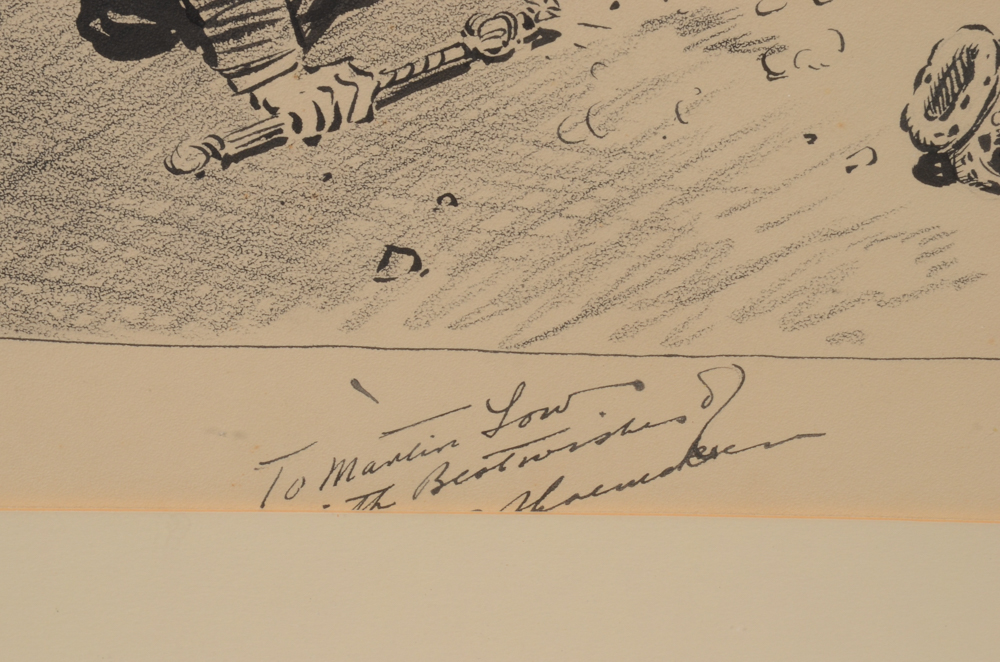 To Martin Low
th Bestwishes of
Shoemaker